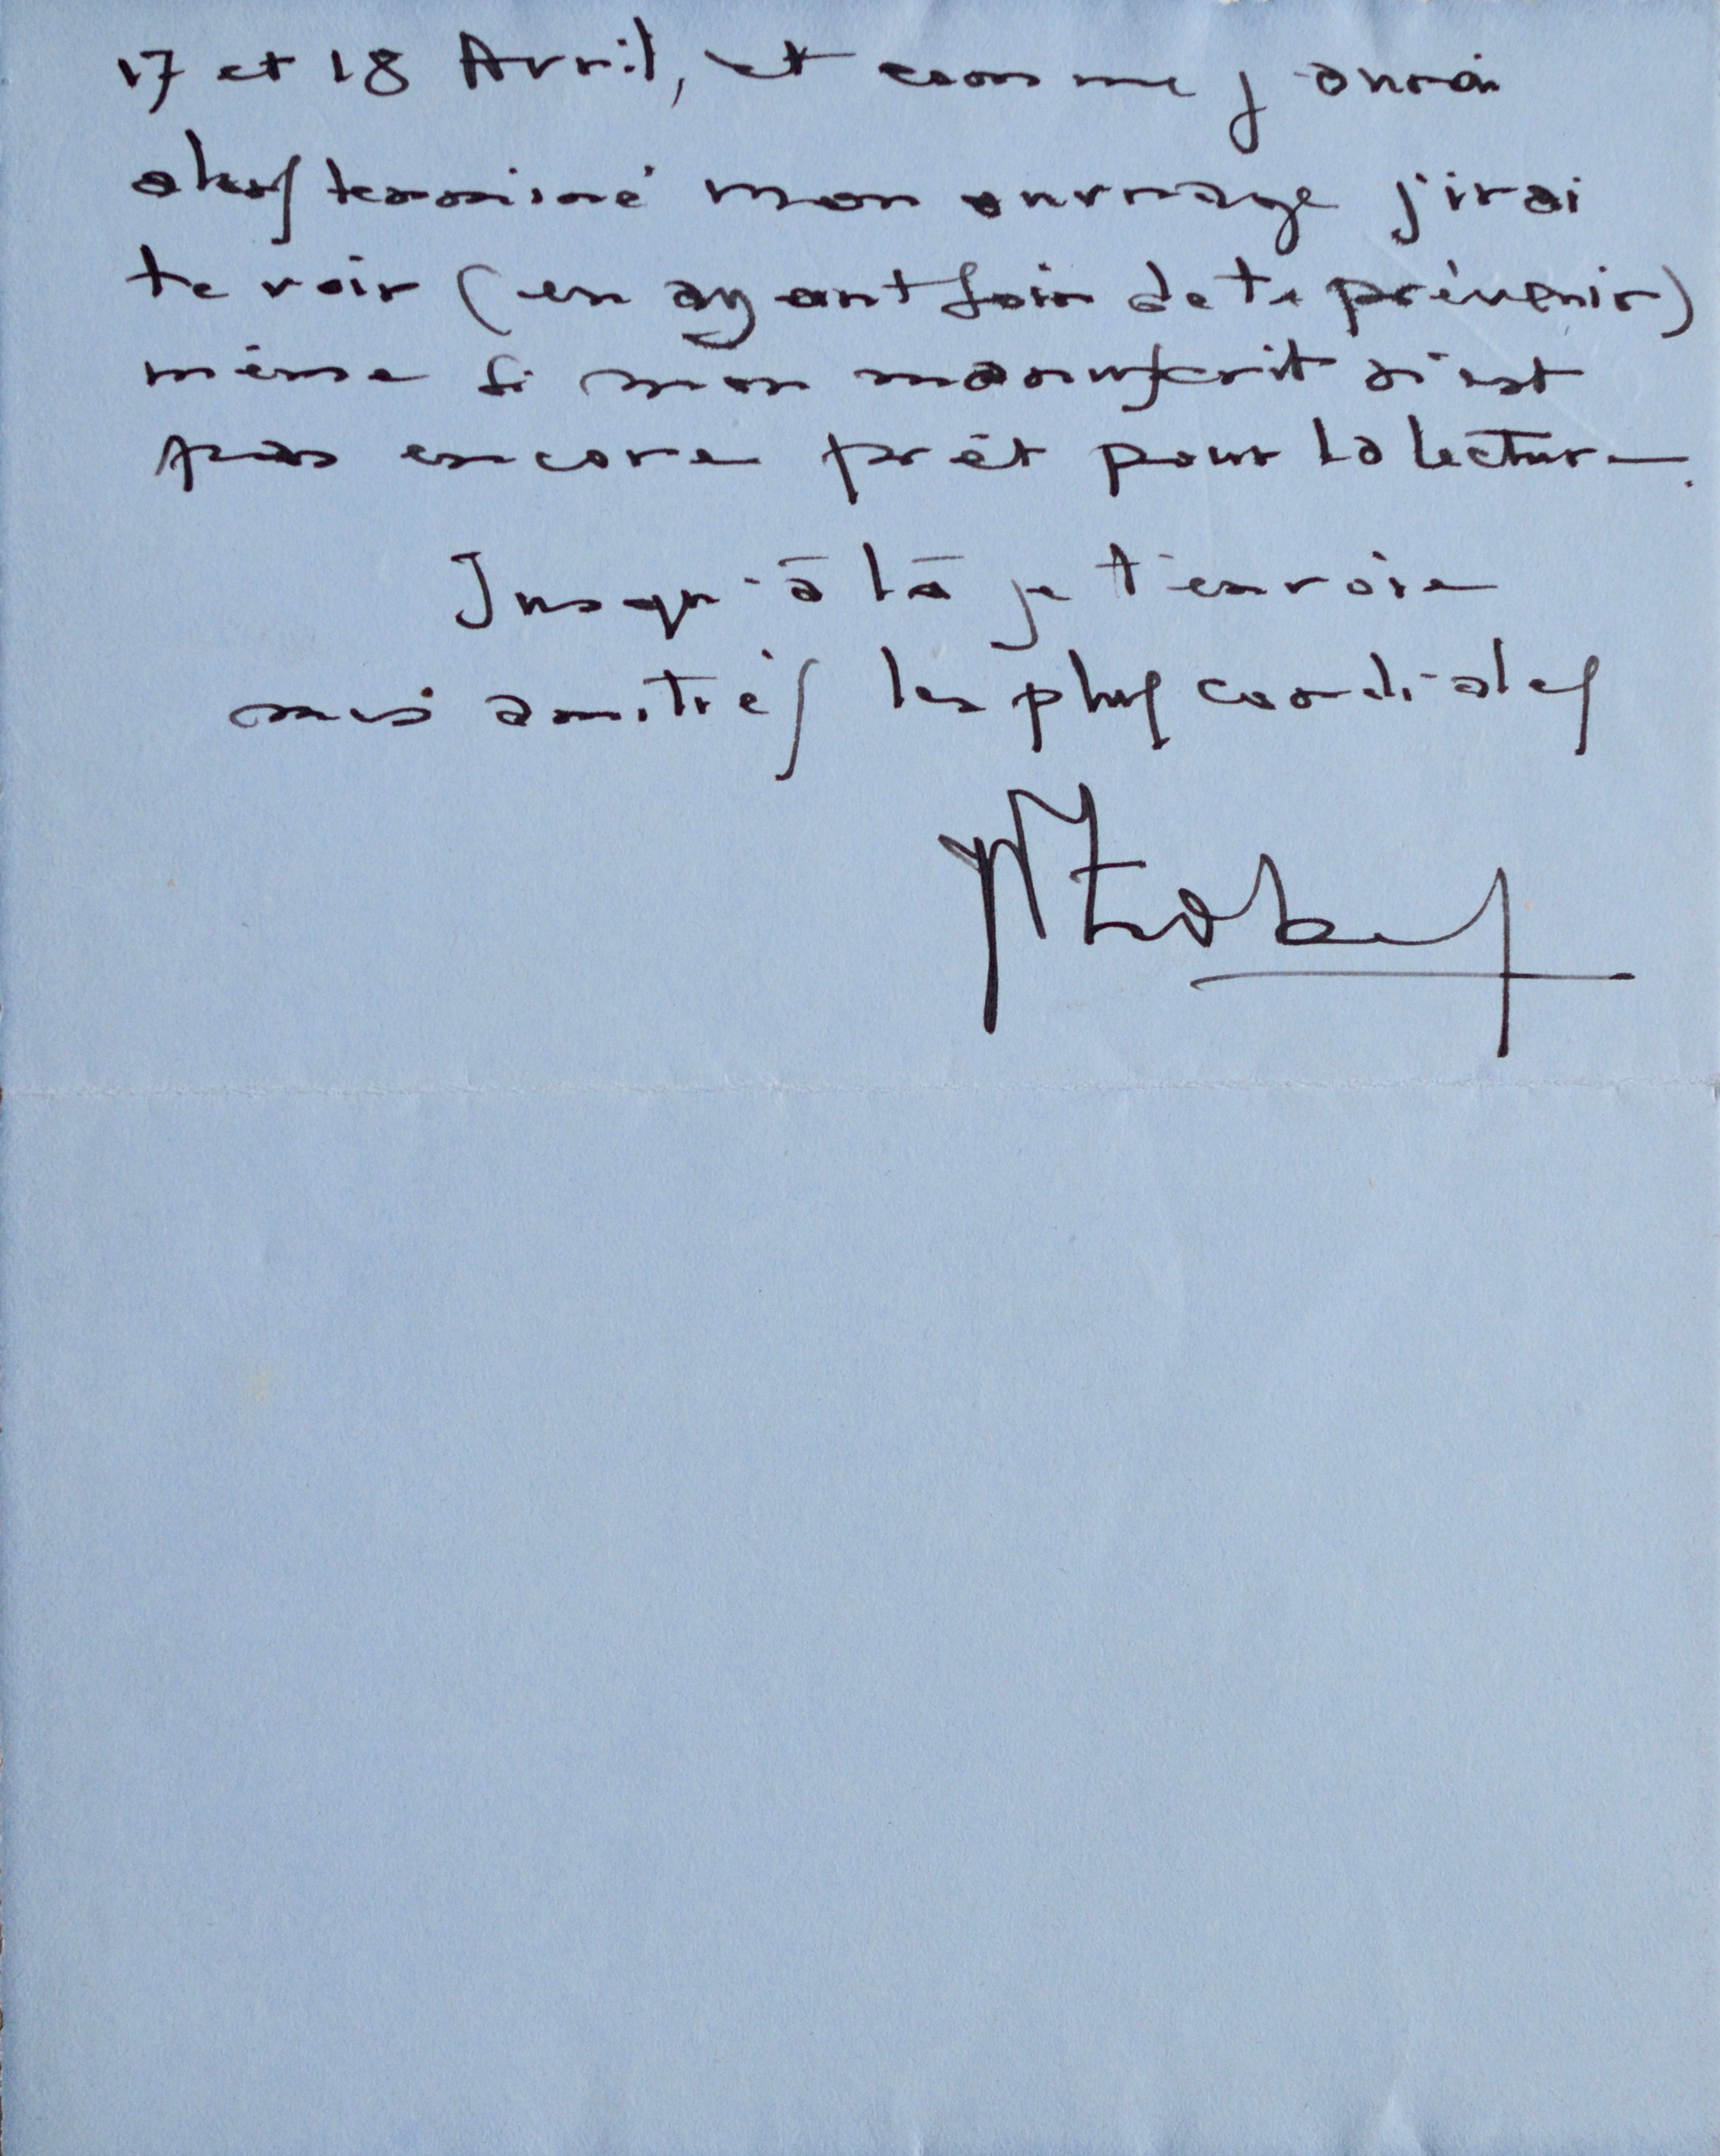 17 et 18 Avril, et comme j'aurai
alors terminé mon ouvrage j'irai
te voir (en ayant soin de te prévenir)
même si mon manuscrit n'est
pas encore prêt pour la lecture.
Jusqu'à là je t'envoie
mes amitiés les plus cordiales
Zobel